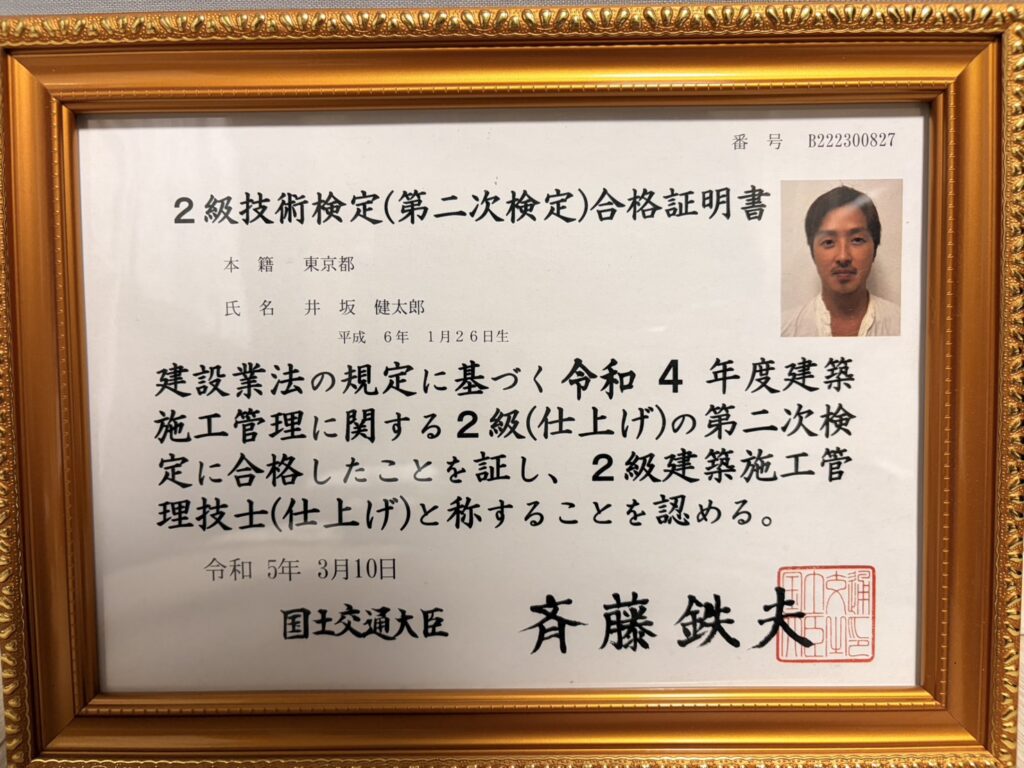 番 号 B222300827
2級技術検定(第二次検定)合格証明書
本 籍 東京都
氏 名 井 坂 健太郎
平成 6年 1月26日生
建設業法の規定に基づく令和 4 年度建築
施工管理に関する2級(仕上げ)の第二次検
定に合格したことを証し、2級建築施工管
理技士(仕上げ)と称することを認める。
令和 5年 3月10日
国土交通大臣 斉藤鉄夫